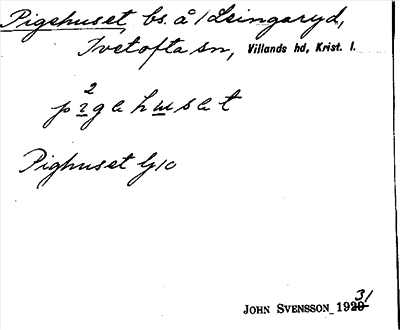 Pigehuset bs. å 1 Leingaryd,
Ivetofta sn, Villands hd, Krist. l.
2
p i g e h u s e t
Pighuset G10
JOHN SVENSSON 1920 31